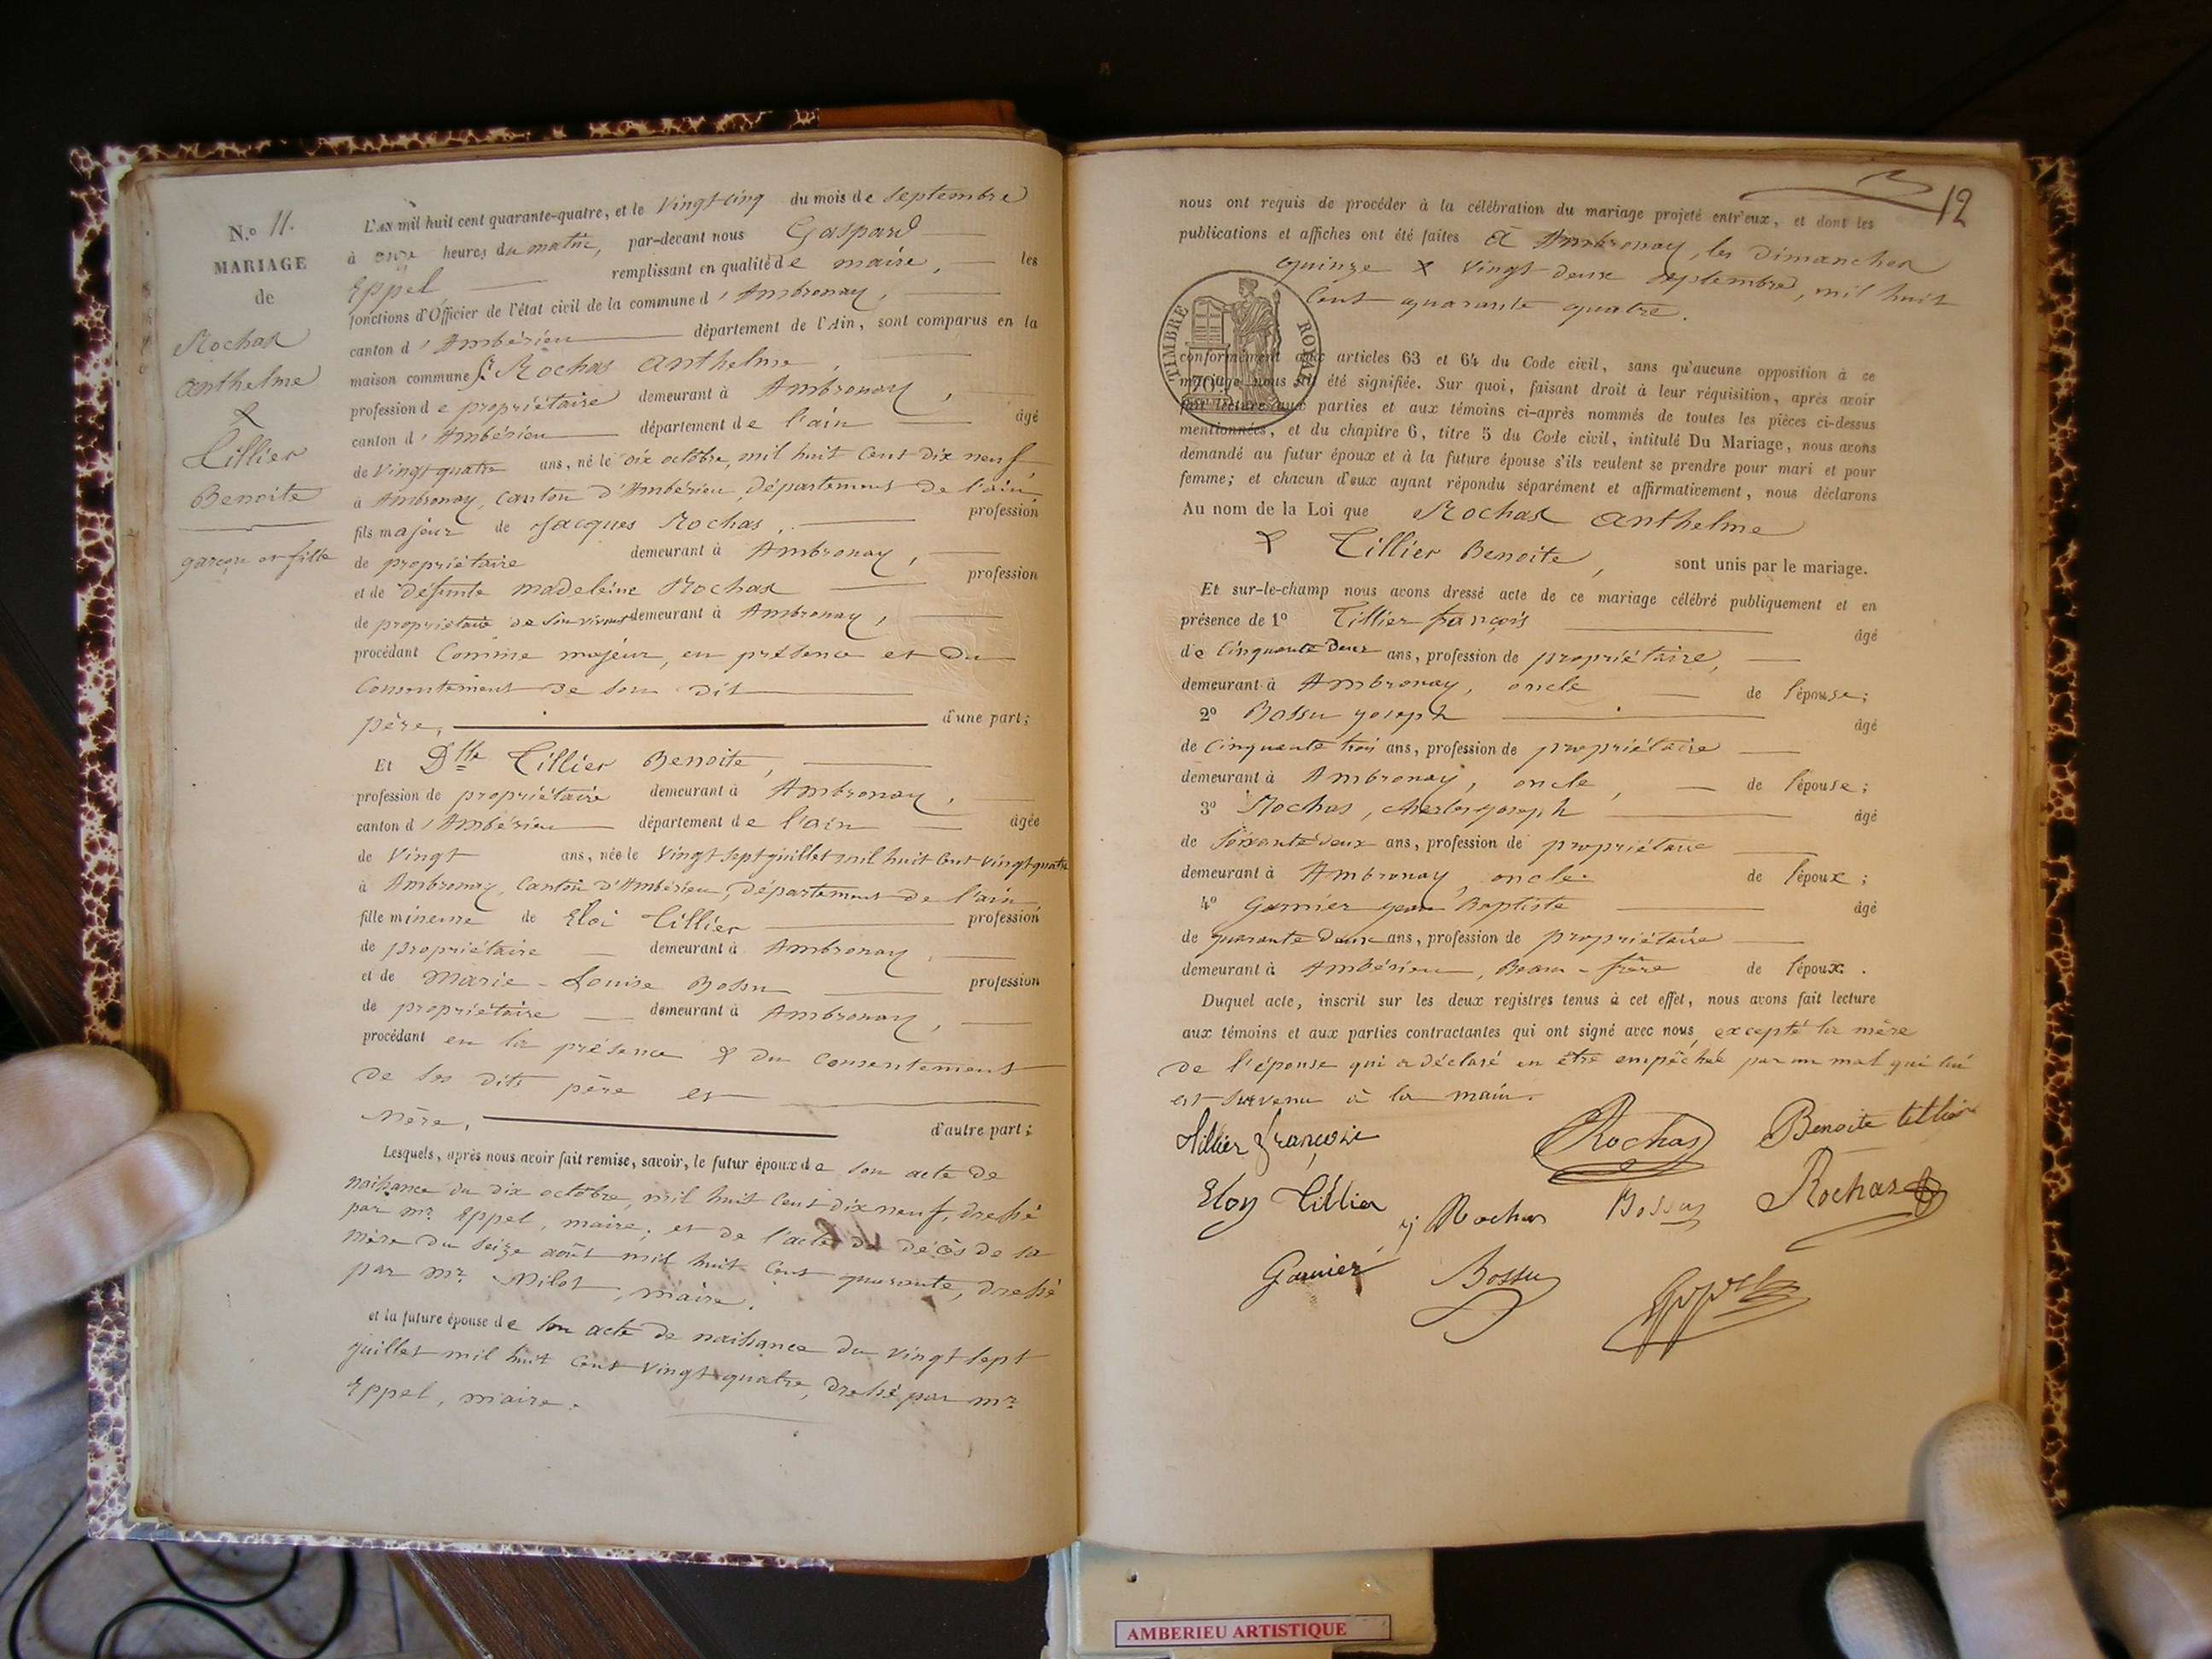 N.o 11.
MARIAGE
de
Rochas
Anthelme
&
Tillier
Benoite
garçon et fille
L'AN mil huit cent quarante-quatre, et le Vingt-cinq du mois de septembre
à onze heures du matin, par-devant nous Gaspard
Eppel remplissant en qualité de maire, les
fonctions d'Officier de l'état civil de la commune d'Ambronay,
canton d'Ambérieu département de l'Ain, sont comparus en la
maison commune Sr Rochas Anthelme,
profession de propriétaire demeurant à Ambronay,
canton d'Ambérieu département de l'ain âgé
de Vingt quatre ans, né le dix octobre, mil huit Cent dix neuf,
à Ambronay, Canton d'Ambérieu, Département de l'ain,
fils majeur de Jacques Rochas, profession
de propriétaire demeurant à Ambronay,
et de Défunte madeleine Rochas profession
de propriétaire de son vivant demeurant à Ambronay,
procédant Comme majeur, en présence et du
Consentement de son dit
père, d'une part;
Et Dlle Tillier Benoite,
profession de propriétaire demeurant à Ambronay,
canton d'Ambérieu département de l'ain âgée
de Vingt ans, née le Vingt sept juillet mil huit Cent vingt quatre
à Ambronay, Canton d'Ambérieu, Département de l'ain,
fille mineure de Eloi Tillier profession
de propriétaire demeurant à Ambronay,
et de Marie-Louise Bossu profession
de propriétaire demeurant à Ambronay,
procédant en la présence & du Consentement
de ses dits père et
Mère, d'autre part;
Lesquels, après nous avoir fait remise, savoir, le futur époux de son acte de
naissance du dix octobre, mil huit Cent dix neuf, dressé
par mr. Eppel, maire; et de l'acte de décès de sa
mère du seize août mil huit Cent quarante, dressé
par mr. Milot, maire.
et la future épouse de son acte de naissance du vingt sept
juillet mil huit Cent Vingt quatre, dressé par mr.
Eppel, maire.
12
nous ont requis de procéder à la célébration du mariage projeté entr'eux, et dont les
publications et affiches ont été faites à Ambronay, les Dimanches
quinze & vingt-deux septembre, mil huit
Cent quarante quatre.
TIMBRE ROYAL
70c
conformément aux articles 63 et 64 du Code civil, sans qu'aucune opposition à ce
mariage nous ait été signifiée. Sur quoi, faisant droit à leur réquisition, après avoir
fait lecture aux parties et aux témoins ci-après nommés de toutes les pièces ci-dessus
mentionnées, et du chapitre 6, titre 5 du Code civil, intitulé Du Mariage, nous avons
demandé au futur époux et à la future épouse s'ils veulent se prendre pour mari et pour
femme; et chacun d'eux ayant répondu séparément et affirmativement, nous déclarons
Au nom de la Loi que Rochas Anthelme
& Tillier Benoite, sont unis par le mariage.
Et sur-le-champ nous avons dressé acte de ce mariage célébré publiquement et en
présence de 1o Tillier françois âgé
de Cinquante Deux ans, profession de propriétaire,
demeurant à Ambronay, oncle de l'épouse;
2o Bossu joseph âgé
de Cinquante trois ans, profession de propriétaire
demeurant à Ambronay, oncle, de l'épouse;
3o Rochas, charles joseph âgé
de Soixante deux ans, profession de propriétaire
demeurant à Ambronay, oncle de l'époux;
4o Garnier jean Baptiste âgé
de quarante Deux ans, profession de propriétaire
demeurant à Ambérieu, Beau-frère de l'époux.
Duquel acte, inscrit sur les deux registres tenus à cet effet, nous avons fait lecture
aux témoins et aux parties contractantes qui ont signé avec nous, excepté la mère
de l'épouse qui a déclaré en être empêchée par un mal qui lui
est survenu à la main.
tillier françois Rochas Benoite tillier
Eloy tillier j Rochas Bossu Rochas
Garnier Bossu Eppel
AMBERIEU ARTISTIQUE